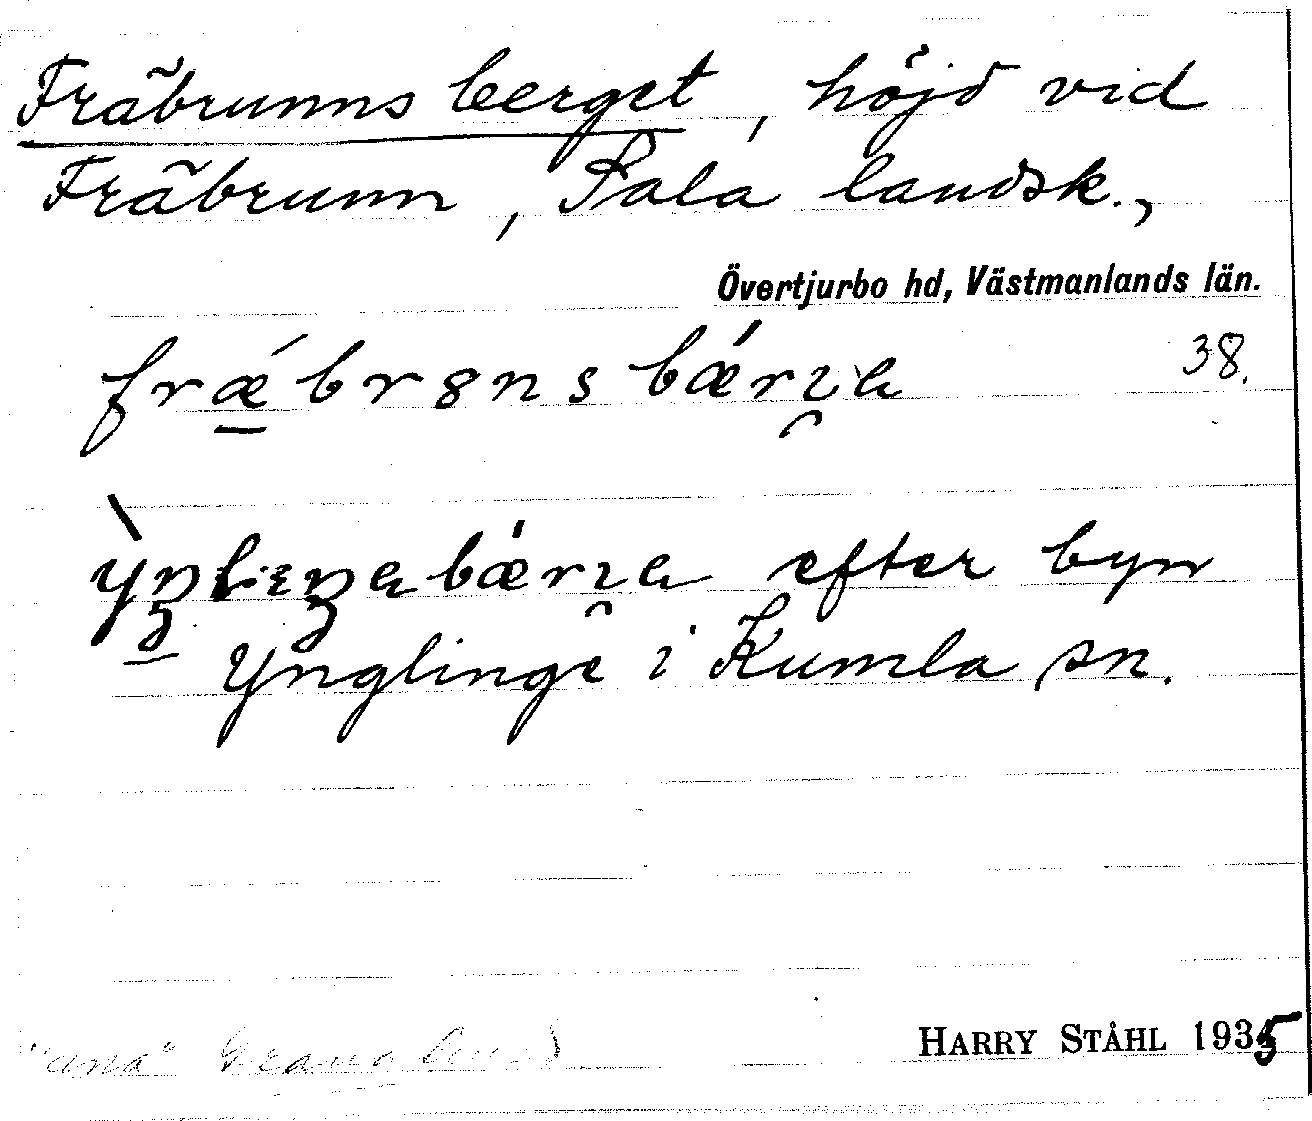 Fräbrunnsberget, höjd vid
Fräbrunn, Sala landsk.,
Övertjurbo hd, Västmanlands län.
frǽbrɷnsbǽrɩ̯a 38.
efter byn
Ynglinge i Kumla sn.
HARRY STÅHL 1935